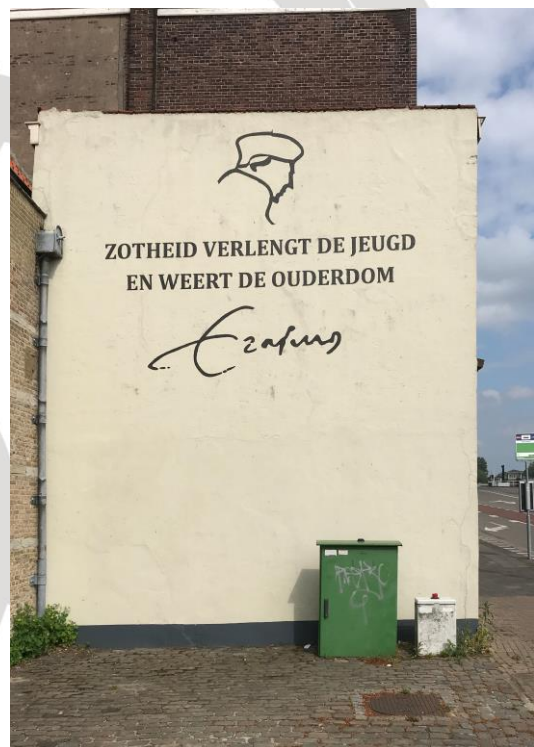 ZOTHEID VERLENGT DE JEUGD
EN WEERT DE OUDERDOM
Erasmus